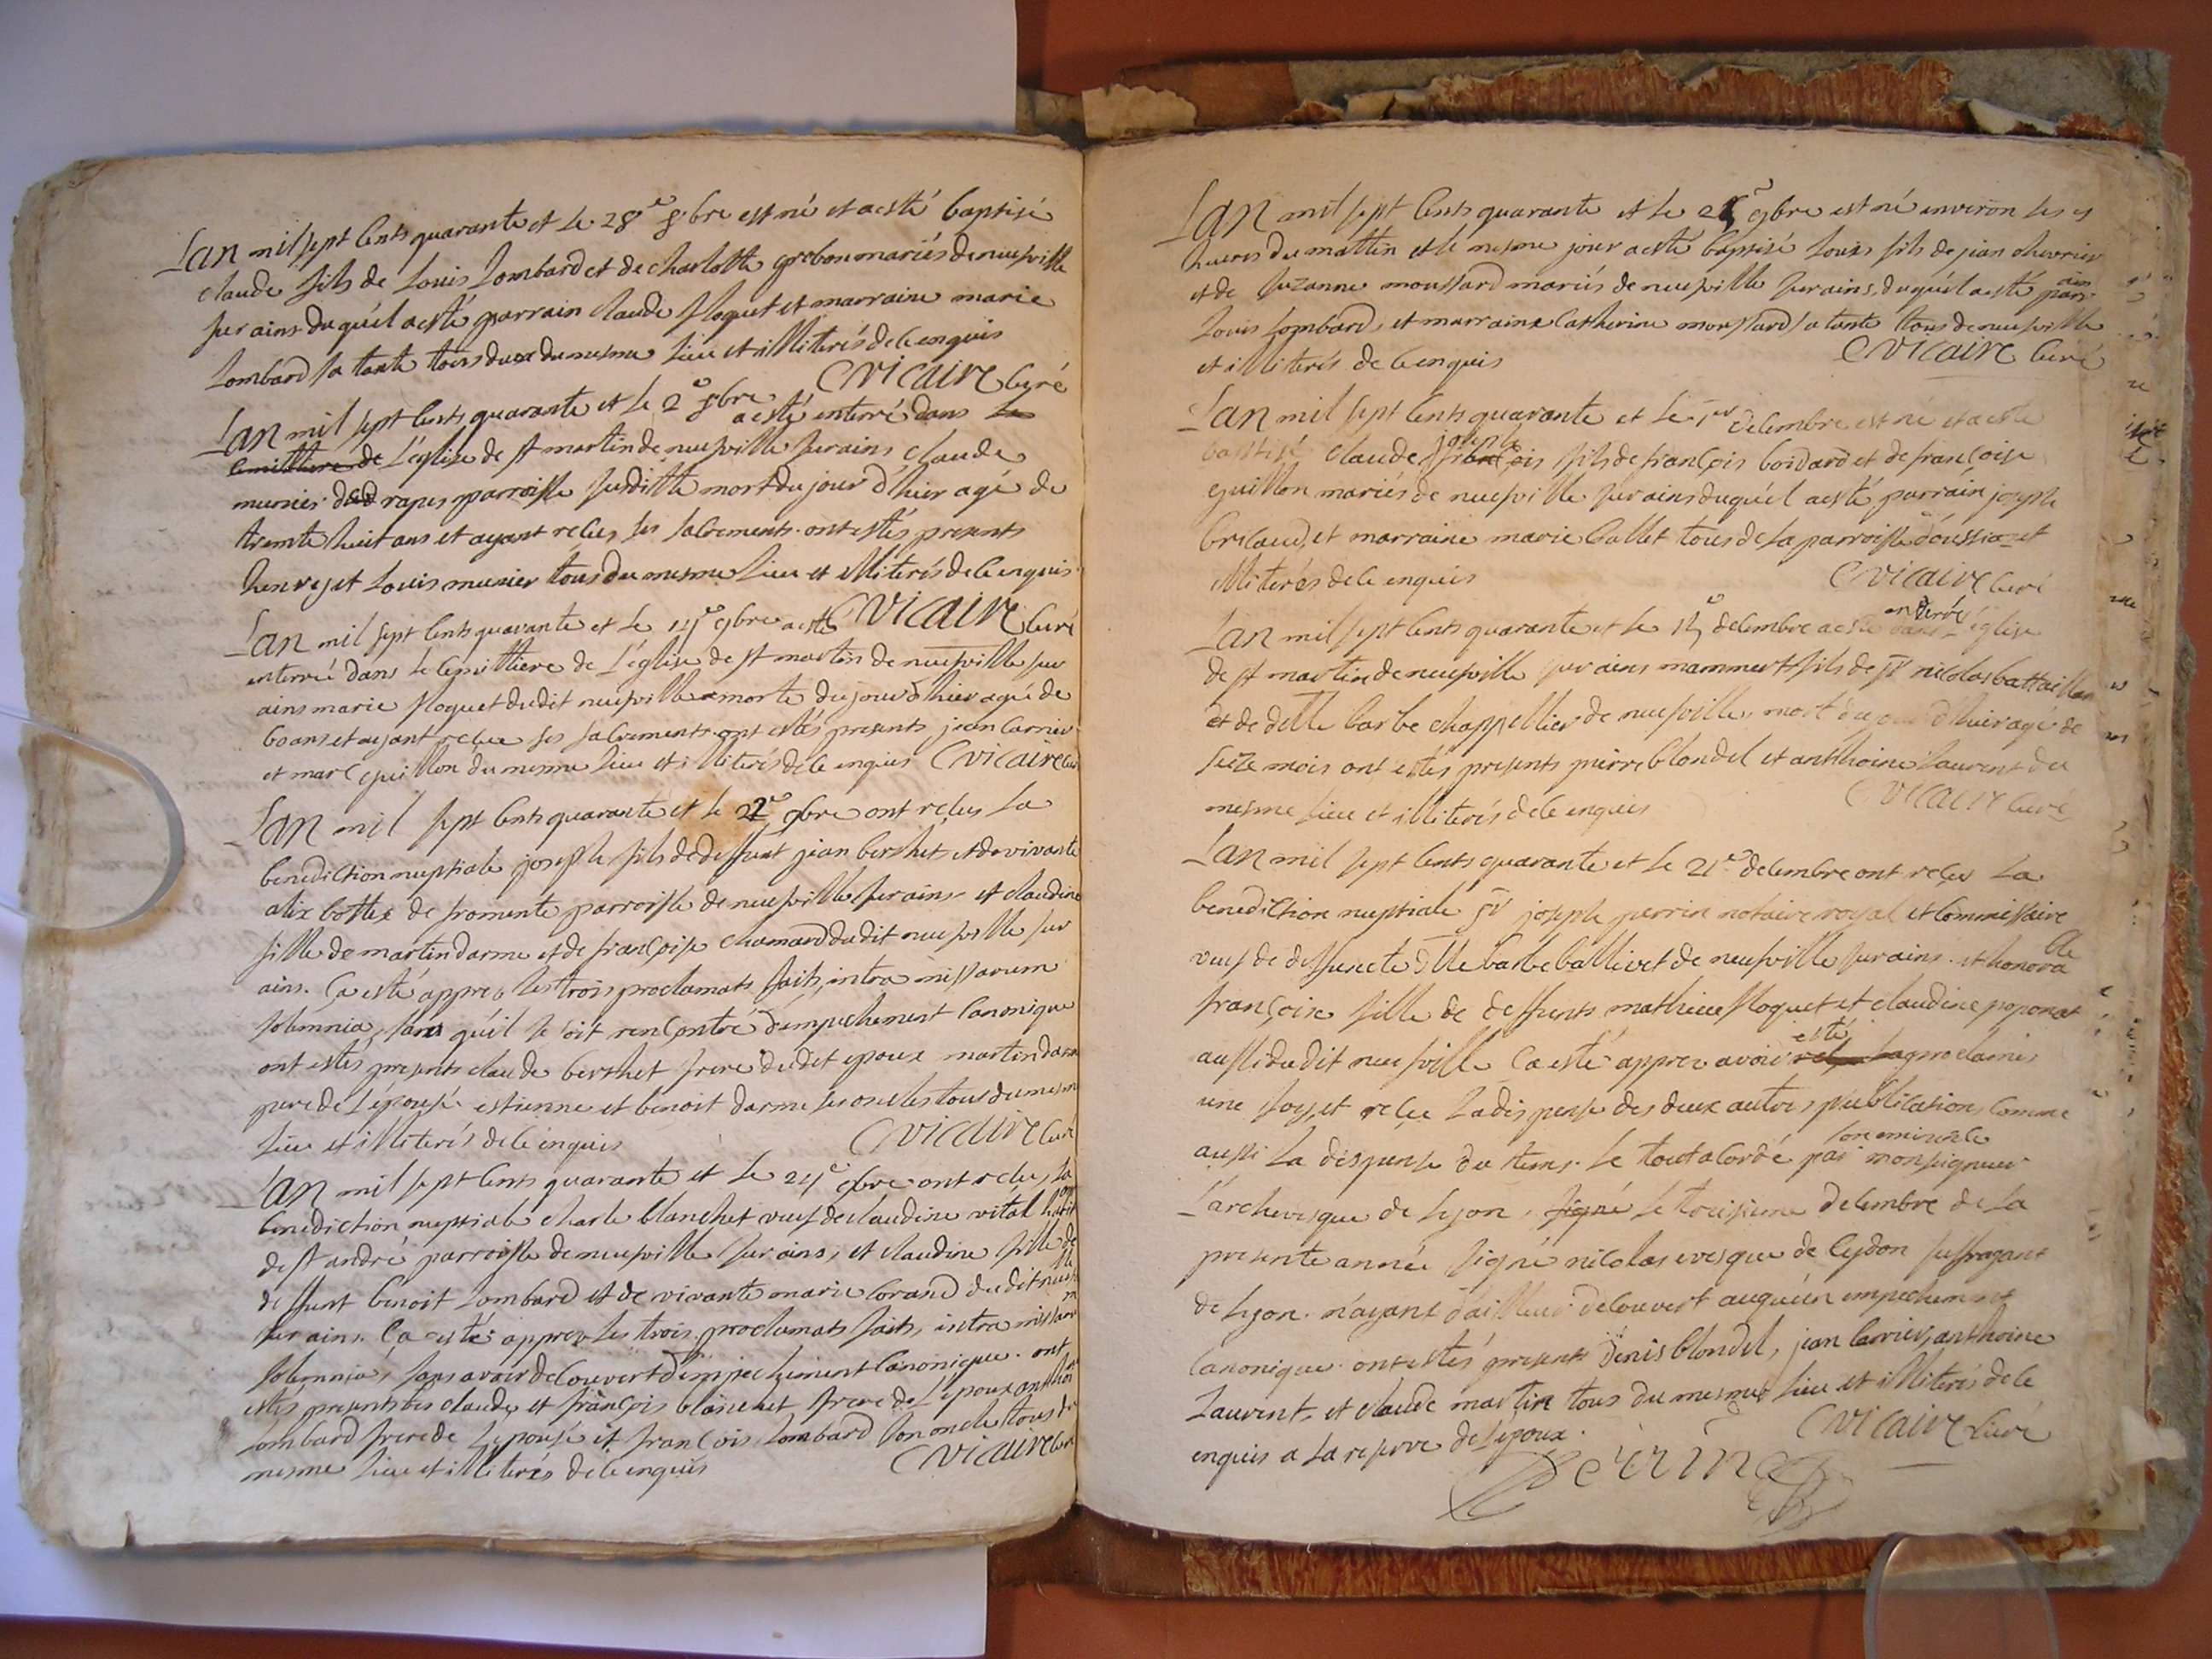 Lan mil sept cents quarante et le 28e 8bre est né et a esté baptisé
claude fils de Louis Lombard et de charlotte grebon mariés de neufville
sur ains duquél a esté parrain claude floquet et marraine marie
Lombard sa tante tous deux du mesme lieu et illiterés de ce enquis
Cvicaire Curé
Lan mil sept cents quarante et le 2e 9bre a esté enterré dans le
cemittiere de L'église de st martin de neufville sur ains claude
munier de rapes parroisse susditte mort du jour d'hier agé de
trente huit ans et ayant recus ses sacrements. ont estés presents
henry et Louis munier tous du mesme lieu et illiterés de ce enquis
Cvicaire Curé
Lan mil sept cents quarante et le 9bre a esté
enterré dans le cemittiere de L'église de st martin de neufville sur
ains marie floquet dudit neufville morte du jour d'hier agée de
60 ans et ayant recue ses sacrements ont estés presents jean Carrier
et marc guillon du mesme lieu et illiterés de ce enquis Cvicaire Curé
Lan mil sept cents quarante et le 22e 9bre ont recus La
benediction nuptiale joseph fils de deffunt jean berthet et de vivante
alix bottex de fromente parroisse de neufville sur ains et claudine
fille de martin darme et de françoise chamard dudit neufville sur
ains. Ca esté appres les trois proclamats faits, intra missarum
solemnia, sans qu'il se soit rencontré d'empechement Canonique
ont estés presents claude berthet frere dudit epoux martin darme
pere de L'épouse estienne et benoit darme ses oncles tous du mesme
lieu et illiterés de ce enquis Cvicaire Curé
Lan mil sept cents quarante et le 9bre ont recus La
benediction nuptiale charle blanchet veuf de claudine vital
de st andré parroisse de neufville sur ains, et claudine fille de
deffunt benoit Lombard et de vivante marie dudit neufville
sur ains. Ca esté appres les trois proclamats faits, intra missarum
solemnia, sans avoir decouvert d'empechement Canonique. ont
estés presents claude et françois blanchet frere de L'epoux anthoine
Lombard frere de L'epouse et françois Lombard son oncle tous du
mesme lieu et illiterés de ce enquis Cvicaire Curé
Lan mil sept cents quarante et le 9bre est né environ les
heures du mattin et le mesme jour a esté baptisé Louis fils de jean chevrier
et de suzanne moussard mariés de neufville sur ains, duquél a esté parrain
Louis Lombard, et marraine Catherine moussard sa tante tous de neufville
et illiterés de ce enquis Cvicaire Curé
Lan mil sept cents quarante et le 1er decembre est né et a esté
battisé claude joseph françois fils de françois boidard et de françoise
guillon mariés de neufville sur ains duquél a esté parrain joseph
bricaud, et marraine marie Gallet tous de la parroisse d'oussiat et
illiterés de ce enquis Cvicaire Curé
Lan mil sept cents quarante et le decembre a esté enterré dans L'église
de st martin de neufville sur ains mammert fils de sr nicolas battaillard
et de delle barbe chappellier de neufville, mort du jour d'hier agé de
seize mois ont estés presents pierre blondel et anthoine Laurent du
mesme lieu et illiterés de ce enquis Cvicaire Curé
Lan mil sept cents quarante et le 21e decembre ont reçus La
benediction nuptiale sr joseph perrin notaire royal et Commissaire
veuf de deffuncte dlle barbe ballivet de neufville sur ains. et honorable
françoise fille de deffunts mathieu floquet et claudine poponet
aussi dudit neufville Ca esté appres avoir esté proclamés
une fois, et reçue La dispense des deux autres publications Comme
aussi La dispense du tems. Le tout acordé par son eminence monseigneur
L'archevesque de Lyon, signé Le troisieme decembre de La
presente année signé nicolas evesque de Cydon suffragant
de Lyon. n'ayant d'ailleurs decouvert auquun empechement
Canonique. ont estés presents denis blondel, jean Carrier, anthoine
Laurent, et claude martin tous du mesme lieu et illiterés de ce
enquis a La reserve de L'epoux. Cvicaire Curé
Perrin